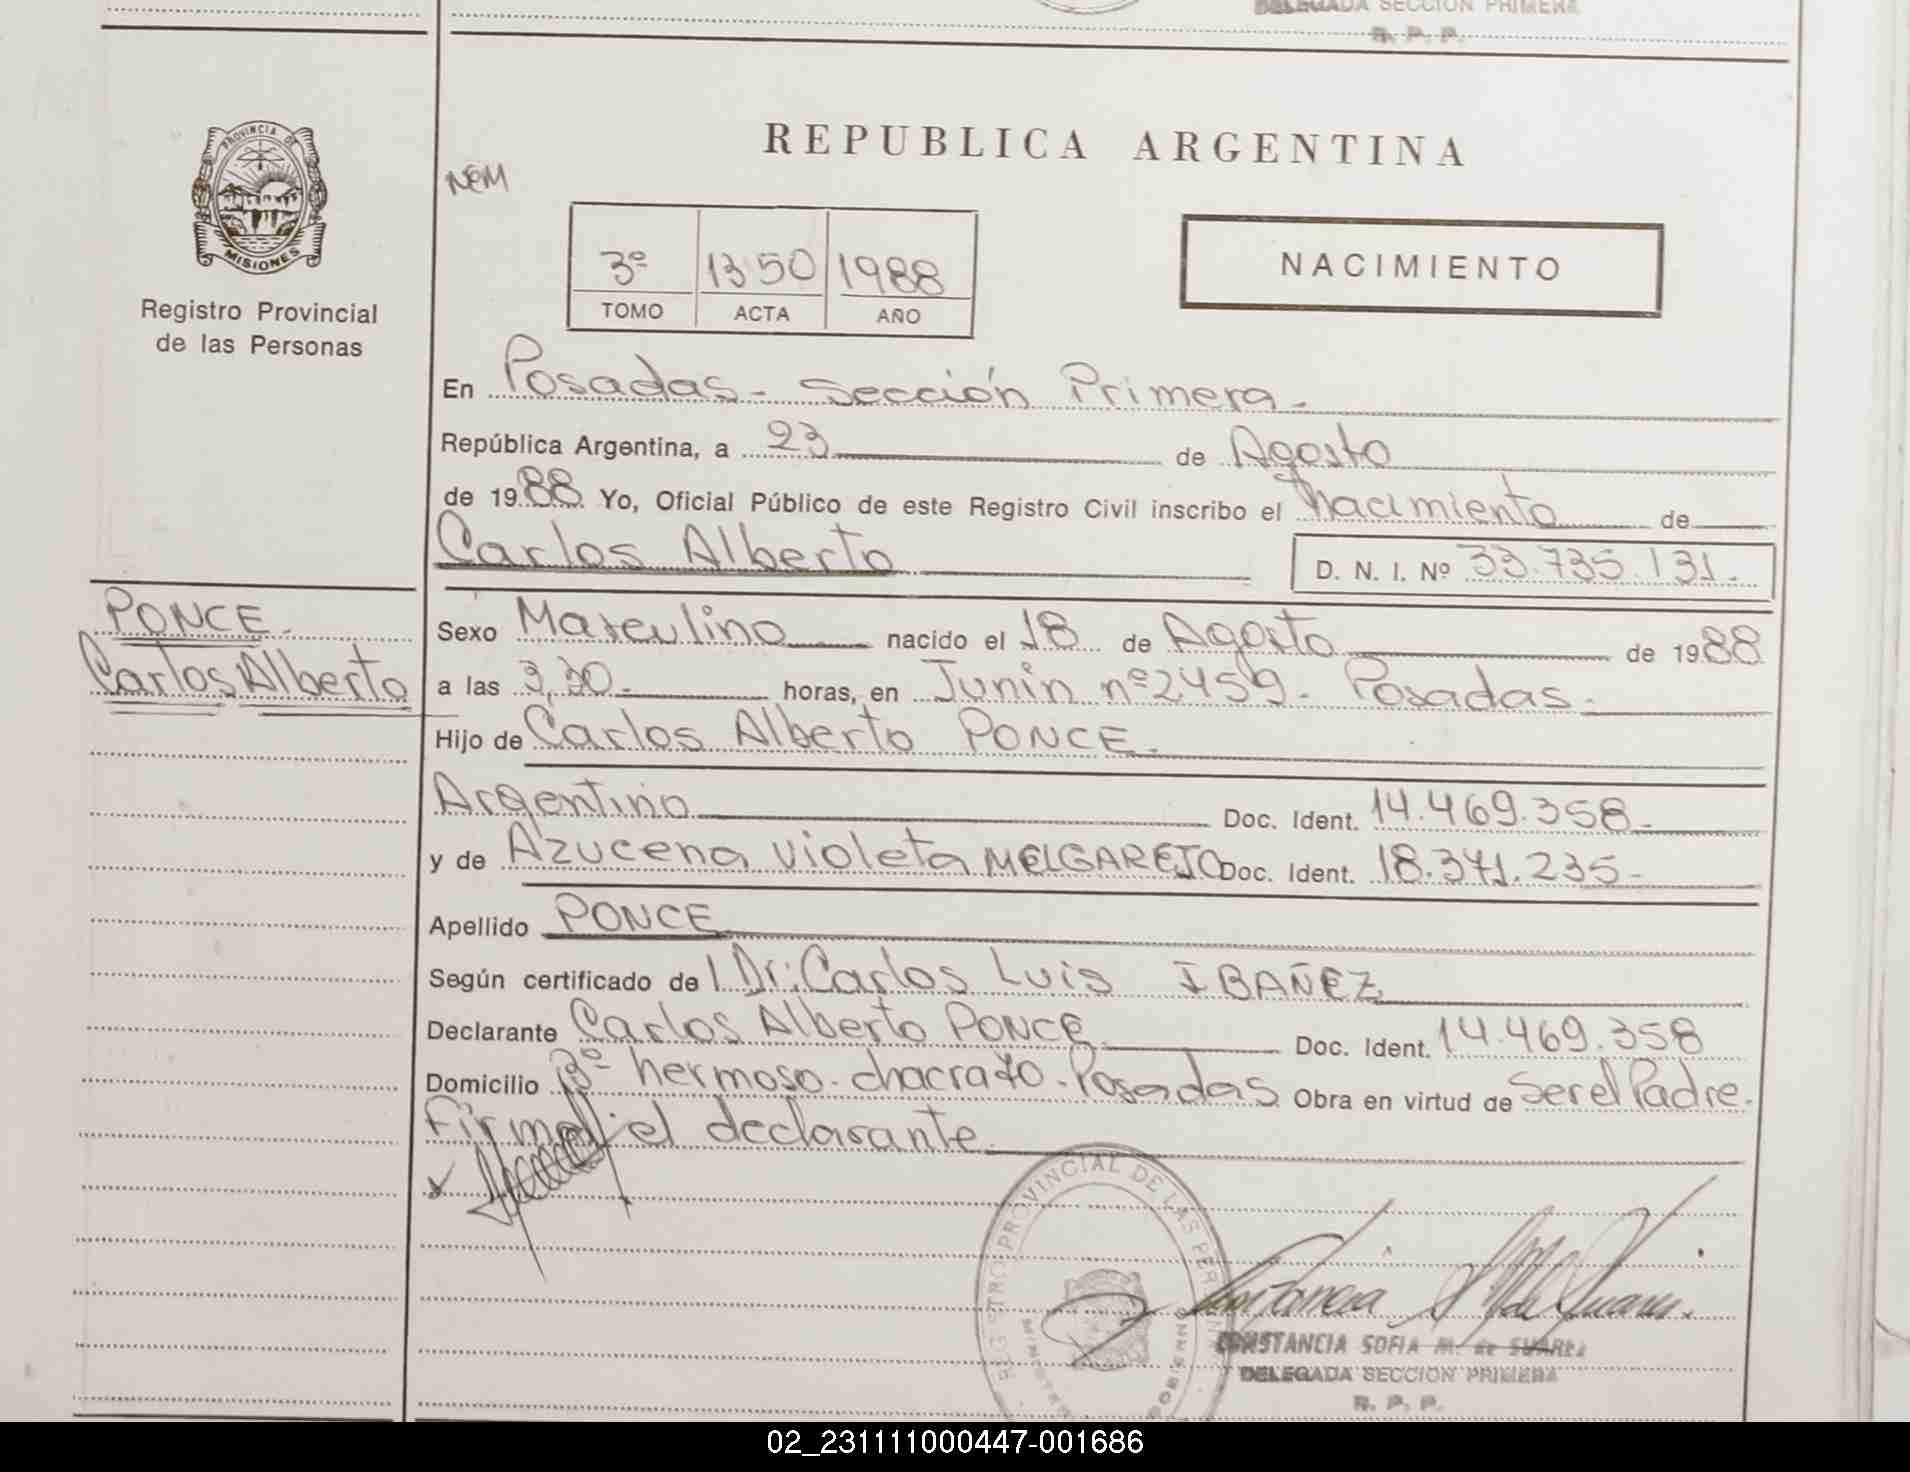 DELEGADA SECCION PRIMERA
R. P. P.
PROVINCIA DE
MISIONES
Registro Provincial
de las Personas
REPUBLICA ARGENTINA
NEM
3º 1350 1988
TOMO ACTA AÑO
NACIMIENTO
En Posadas - Sección Primera -
República Argentina, a 23 de Agosto
de 1988 Yo, Oficial Público de este Registro Civil inscribo el nacimiento de
Carlos Alberto D. N. I. Nº 33.735.131.-
PONCE.
Carlos Alberto
Sexo Masculino nacido el 18 de Agosto de 1988
a las 3,30.- horas, en Junin nº 2459 - Posadas.-
Hijo de Carlos Alberto PONCE.-
Argentino Doc. Ident. 14.469.358.-
y de Azucena Violeta MELGAREJO Doc. Ident. 18.371.235-
Apellido PONCE
Según certificado de l Dr: Carlos Luis IBAÑEZ
Declarante Carlos Alberto PONCE Doc. Ident. 14.469.358
Domicilio Bº hermoso - chacra - Posadas Obra en virtud de Ser el Padre.
Firma el declarante
REGISTRO PROVINCIAL DE LAS PER
CONSTANCIA SOFIA M. de SUAREZ
DELEGADA SECCION PRIMERA
R. P. P.
02_231111000447-001686